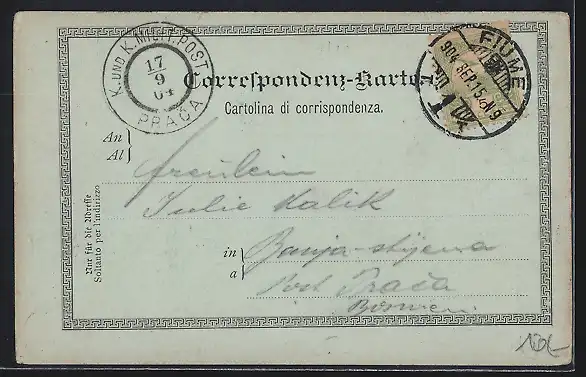 K. UND K. MILIT. POST
17
9
04
PRAČA
FIUME
904 SEP. 15
N9
Correspondenz-Karte
Cartolina di corrispondenza.
An
Al
Fräulein
Julie Kalik
in
a
Banja-stijena
Post Prača
Bosnien
Nur für die Adresse
Soltanto per l'indirizzo